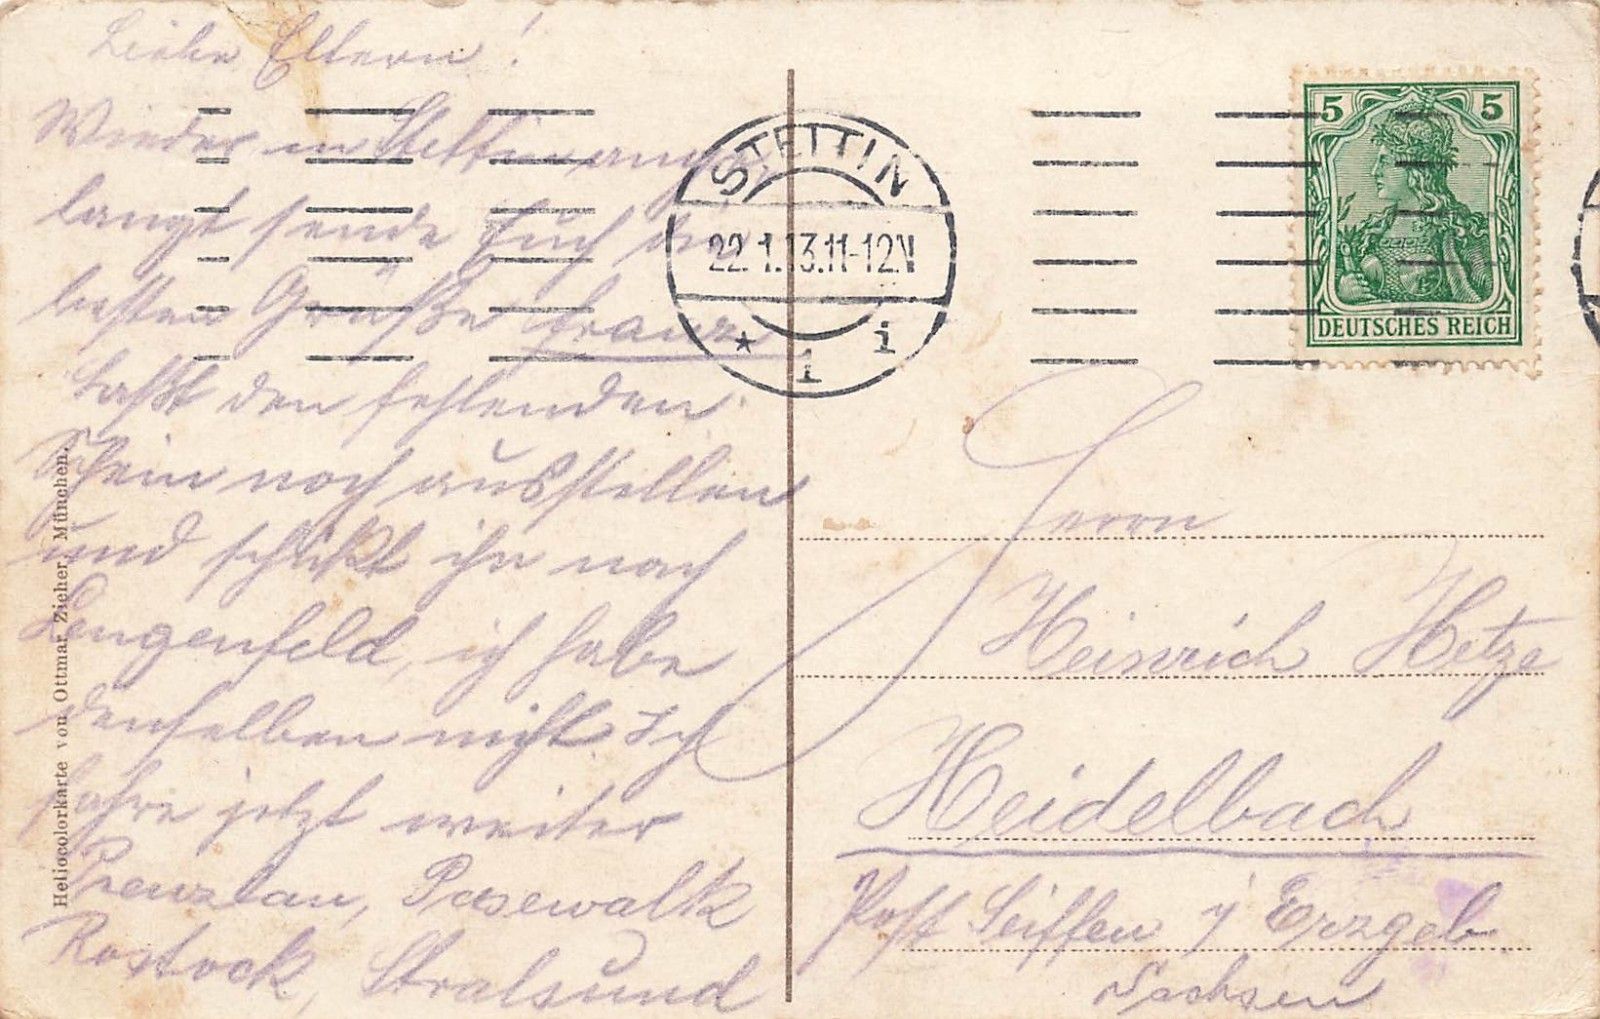 Liebe Eltern!
Wieder in Stettin ange
langt sende Euch die
besten Grüße Franz
Laßt den fehlenden
Schein noch ausstellen
und schickt ihn nach
Lengenfeld, ich habe
denselben nicht. Ich
fahre jetzt weiter
Prenzlau, Pasewalk
Rostock, Stralsund
Heliocolorkarte von Ottmar Zieher, München.
STETTIN
22.1.13.11-12V
* 1 i
5 5
DEUTSCHES REICH
Herrn
Heinrich Hetze
Heidelbach
Post Seiffen i/ Erzgeb
Sachsen